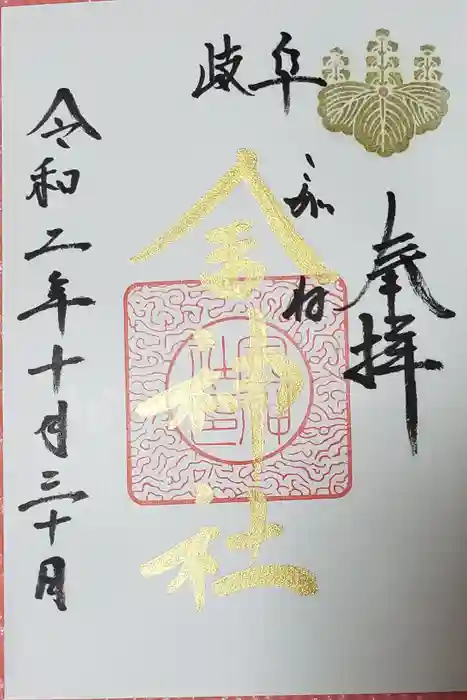 岐阜
奉拝
金神社
令和二年十月三十日